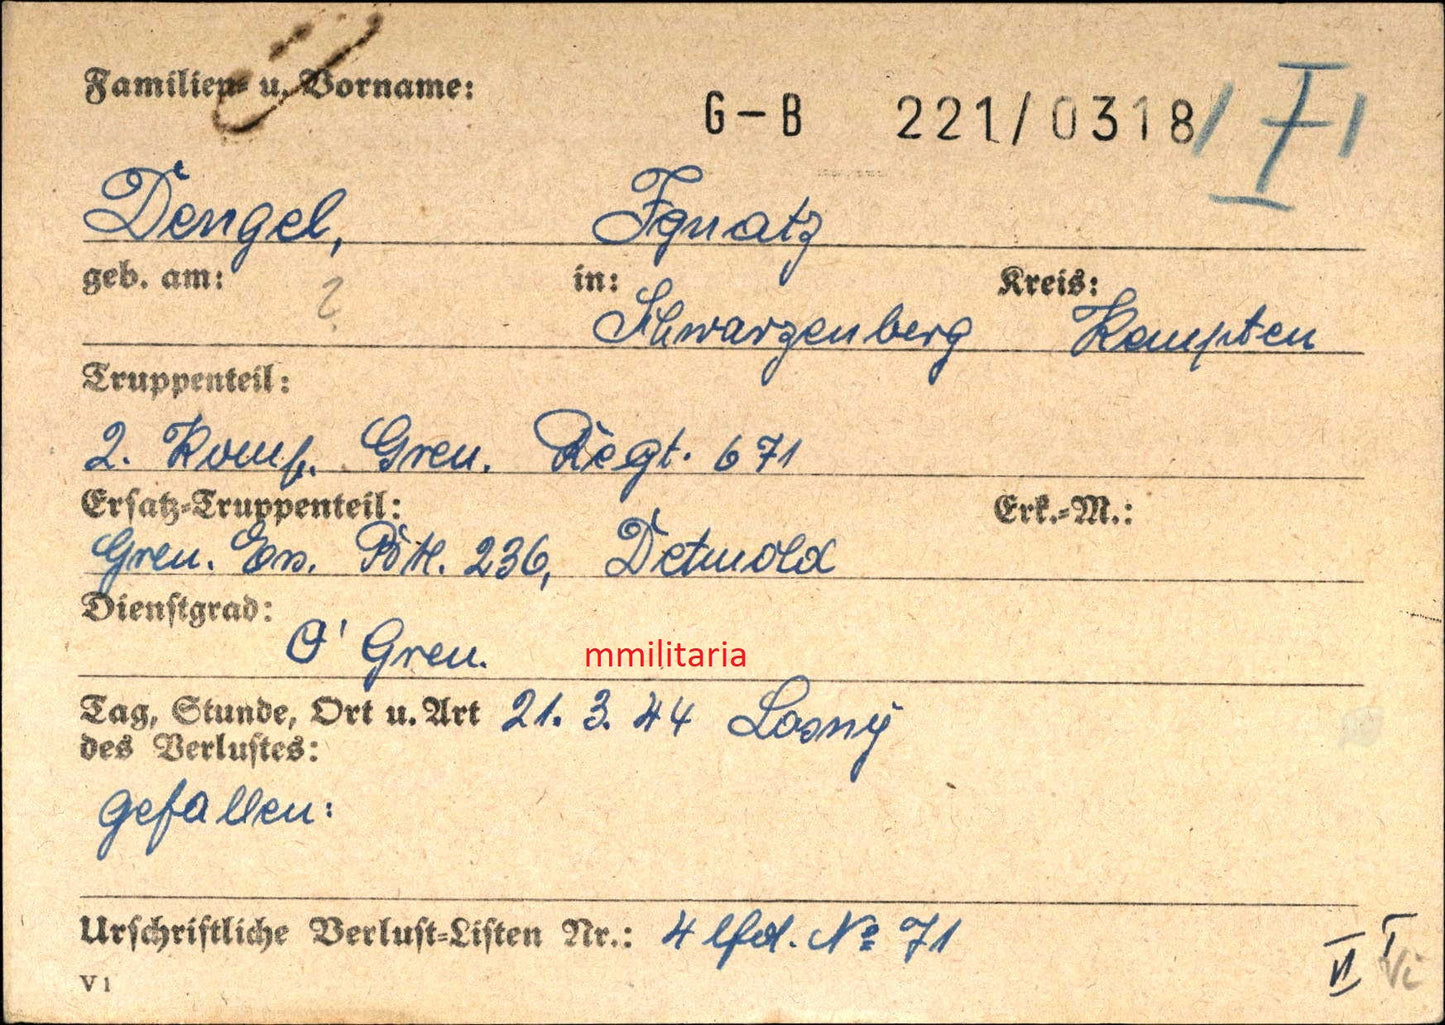 Familien- u. Vorname:
G-B 221/0318 / I /
Dengel, Ignatz
geb. am: in: Kreis:
? Schwarzenberg Kempten
Truppenteil:
2. Komp. Gren. Regt. 671
Ersatz-Truppenteil: Erk.-M.:
Gren. Ers. Btl. 236, Detmold
Dienstgrad:
O'Gren.
mmilitaria
Tag, Stunde, Ort u. Art 21. 3. 44 Losný
des Verlustes:
gefallen:
Urschriftliche Verlust-Listen Nr.: 4 lfd. No 71
V 1 VI